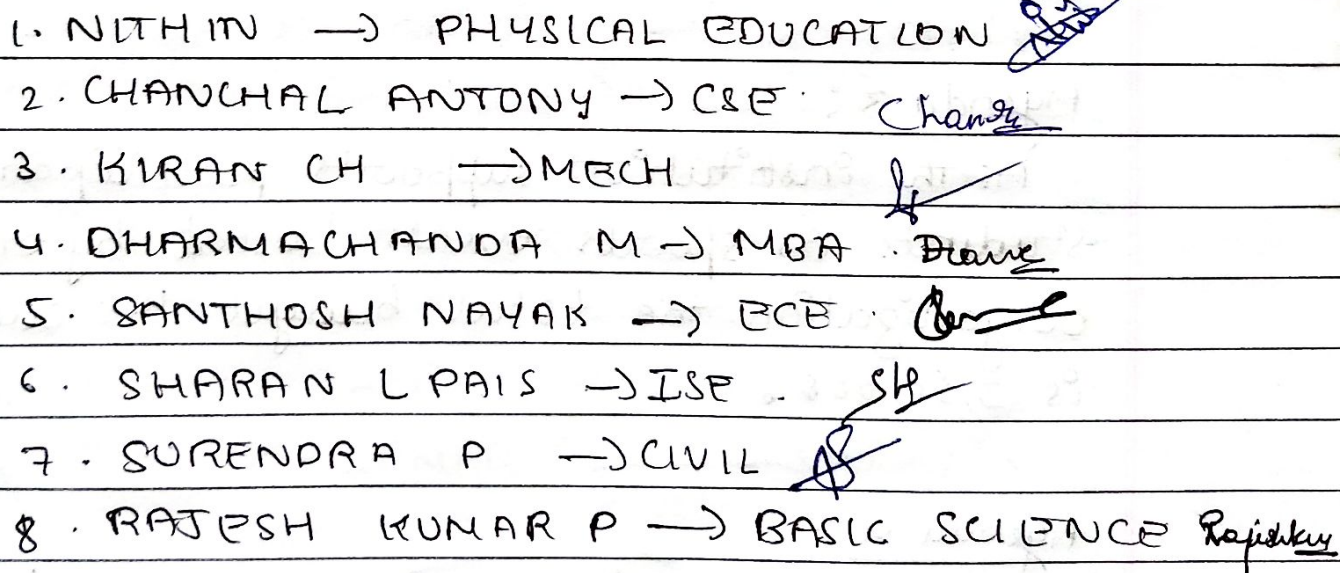 1. NITHIN → PHYSICAL EDUCATION
2. CHANCHAL ANTONY → CSE.
3. KIRAN CH → MECH
4. DHARMACHANDA M → MBA.
5. SANTHOSH NAYAK → ECE.
6. SHARAN L PAIS → ISE.
7. SURENDRA P → CIVIL
8. RAJESH KUMAR P → BASIC SCIENCE